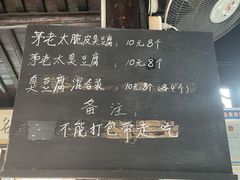 茅老太脆皮臭豆腐：10元8个
茅老太臭豆腐：10元8个
臭豆腐混合装：10元8个(各4个)
备注：
不能打包带走吃